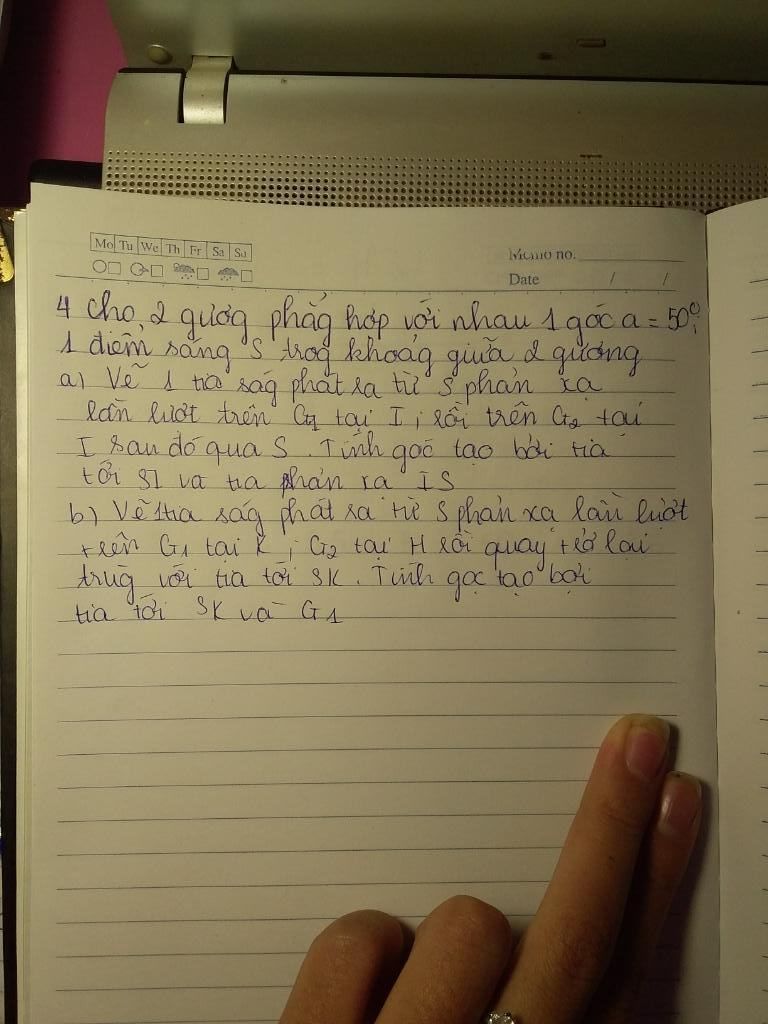 Mo Tu We Th Fr Sa Su
Memo no.
Date / /
4 Cho 2 gươg phẳg hợp với nhau 1 góc a = 50°;
1 điểm sáng S trog khoảg giữa 2 gương
a) Vẽ 1 tiaság phát ra từ S phản xạ
lần lượt trên G1 tại I, rồi trên G2 tại
I sau đó qua S. Tính góc tạo bởi tia
tới SI và tia phản xạ IS
b) Vẽ 1 tia ság phát ra từ S phản xạ lần lượt
trên G1 tại K, G2 tại H rồi quay trở lại
trùg với tia tới SK. Tính góc tạo bởi
tia tới SK và G1